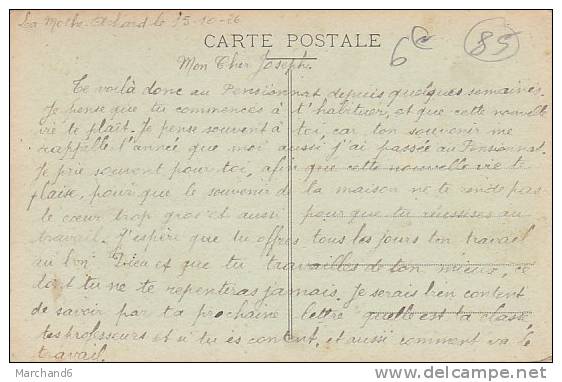 La Mothe-Achard le 15-10-26
CARTE POSTALE
6e
85
Mon Cher Joseph.
Te voilà donc au Pensionnat depuis quelques semaines.
Je pense que tu commences à t'habituer, et que cette nouvelle
vie te plaît. Je pense souvent à toi, car ton souvenir me
rappelle l'année que moi aussi j'ai passée au Pensionnat.
Je prie souvent pour toi, afin que cette nouvelle vie te
plaise, pour que le souvenir de la maison ne te rende pas
le cœur trop gros et aussi pour que tu réussisses au
travail. J'espère que tu offres tous les jours ton travail
au bon Dieu et que tu travailles de ton mieux, ce
dont tu ne te repenteras jamais. Je serais bien content
de savoir par ta prochaine lettre quelle est ta classe,
tes professeurs et si tu es content, et aussi comment va le
travail.
Marchand6
delcampe.net